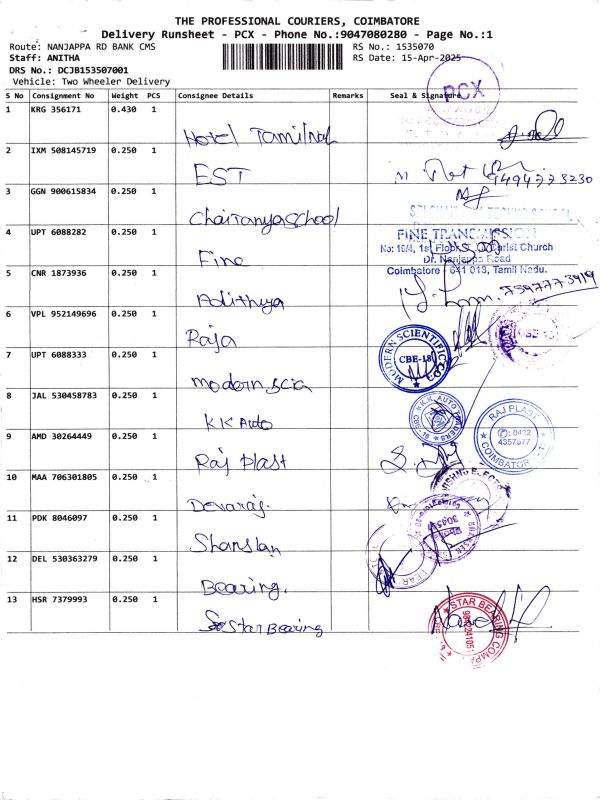 THE PROFESSIONAL COURIERS, COIMBATORE
Delivery Runsheet - PCX - Phone No.:9047080280 - Page No.:1
Route: NANJAPPA RD BANK CMS
RS No.: 1535070
Staff: ANITHA
RS Date: 15-Apr-2025
DRS No.: DCJB153507001
Vehicle: Two Wheeler Delivery
PCX
S No Consignment No Weight PCS Consignee Details Remarks Seal & Signature
1 KRG 356171 0.430 1
Hotel Tamilnad
2 IXM 508145719 0.250 1
EST
9494773230
3 GGN 900615834 0.250 1
Chaitanya School
4 UPT 6088282 0.250 1
FINE TRANSMISSION
No: 19/4, 1st Floor, Christ Church
Dr. Nanjappa Road
Coimbatore - 641 018, Tamil Nadu.
Fine
5 CNR 1873936 0.250 1
7397773919
Adithya
6 VPL 952149696 0.250 1
Raja
7 UPT 6088333 0.250 1
MODERN SCIENTIFIC CO.
CBE-18
modern scia
8 JAL 530458783 0.250 1
K.K. AUTO TRADERS
KK Auto
9 AMD 30264449 0.250 1
RAJ PLAST
✆: 0422
4357577
COIMBATORE - 1
Raj Plast
10 MAA 706301805 0.250 1
Devaraj.
11 PDK 8046097 0.250 1
Shanslan
12 DEL 530363279 0.250 1
Bearing.
13 HSR 7379993 0.250 1
STAR BEARING COMPANY
Star Bearing